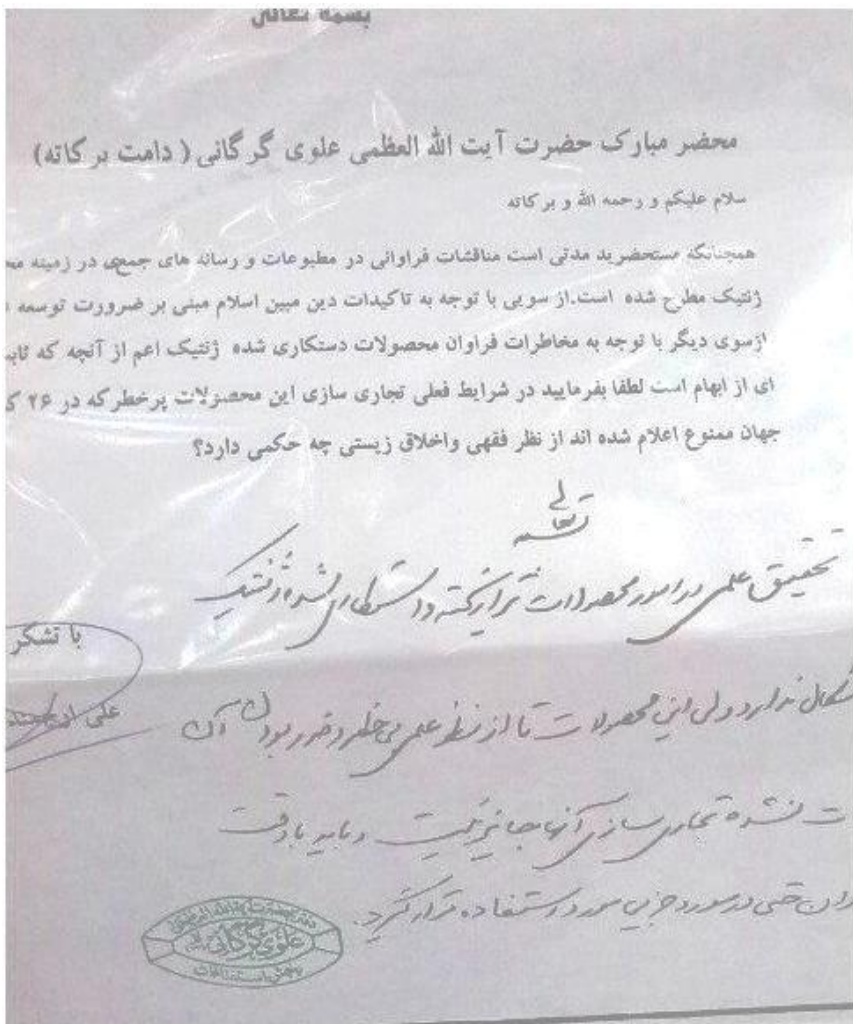 بسمه تعالی
محضر مبارک حضرت آیت الله العظمی علوی گرگانی ( دامت برکاته)
سلام علیکم و رحمه الله و برکاته
همچنانکه مستحضرید مدتی است مناقشات فراوانی در مطبوعات و رسانه های جمعی در زمینه
ژنتیک مطرح شده است.از سویی با توجه به تاکیدات دین مبین اسلام مبنی بر ضرورت توسعه
ازسوی دیگر با توجه به مخاطرات فراوان محصولات دستکاری شده ژنتیک اعم از آنچه که
ای از ابهام است لطفا بفرمایید در شرایط فعلی تجاری سازی این محصولات پرخطر که در ۲۶
جهان ممنوع اعلام شده اند از نظر فقهی واخلاق زیستی چه حکمی دارد؟
تحقیق علمی در امور محصولات تراریخته و دستکاری شده ژنتیک
با تشکر
علی
ندارد ولی این محصولات تا از نظر علمی بی خطر و ضرر بودن آن
نشده تجاری سازی آنها جایز نیست و باید با دقت
حتی در مورد مورد استفاده قرار گیرد.
علوی گرگانی